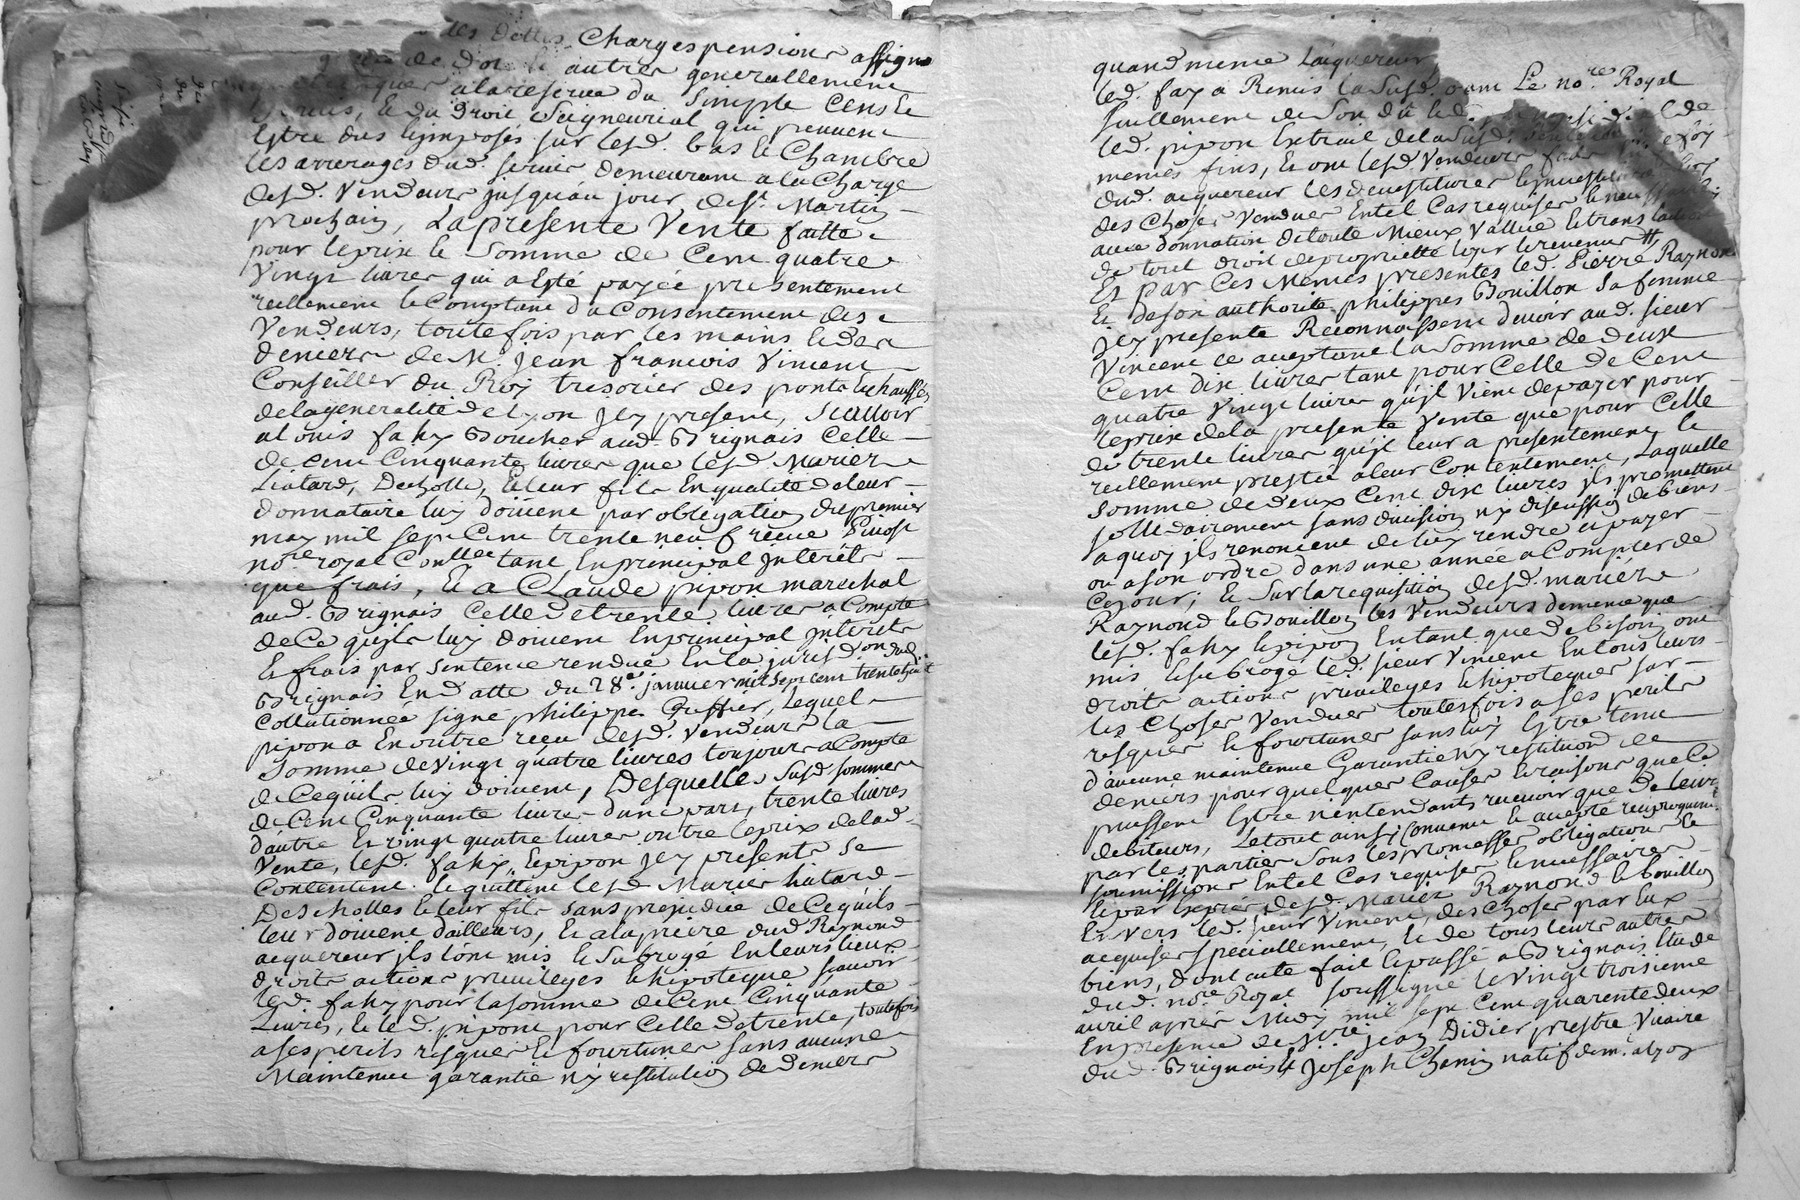 des dettes Charges pensions assigna
autres generallement
a la reserve du simple Cens Et
Servis, Et du Droit Seigneurial qui peuvent
Estre dus Imposés sur lesd. bas Et Chambre
les arrerages dud. servis demeurant a la Charge
desd. Vendeurs jusqu'au jour de St. Martin
prochain, La presente Vente faitte
pour le prix Et Somme de Cent quatre
Vingt livres qui a Esté payée presentement
reellement Et Comptant du Consentement des
Vendeurs, toutefois par les mains Et des
deniers de Mr. Jean francois Vincent
Conseiller du Roy tresorier des ponts Et chaussées
de la generalité de Lyon Jcy present, Scavoir
a Louis fahy Boucher aud. Brignais Celle
de Cent Cinquante livres que lesd. Mariez
Liatard, Decholle, Et leur fils En qualité de leur
donnataire luy doivent par obligation du premier
may mil sept Cent trente neuf receue Pinost
nore. royal Conllee tant En principal Interêts
que frais, Et a Claude pipon mareschal
aud. Brignais Celle de trente livres a Compte
de Ce qu'ils luy doivent En principal jnterêts
Et frais par sentence rendue En la jurisdon. dud.
Brignais En datte du 28e. janvier mil sept cent trente huit
Collationnée signé philippe Ruffier, Lequel
pipon a En outre receu desd. Vendeurs la
Somme de vingt quatre livres toujours a Compte
de Ce qu'ils luy doivent, Desquelles susd. sommes
de Cent Cinquante livres d'une part, trente livres
d'autre Et vingt quatre livres outre le prix de lad.
Vente, lesd. fahy, Et pipon Jcy presents se
Contentent Et quittent lesd. Mariez Liatard
Descholles Et leur fils sans prejudice de Ce qu'ils
leur doivent d'ailleurs, Et a la priere dud. Raymond
acquereur jls l'ont mis Et Subrogé En leurs lieux
droits actions privileges Et hipoteques scavoir
led. fahy pour la somme de Cent Cinquante
Livres, Et led. pipont pour Celle de trente, toutefois
a ses perils risques Et fourtunes sans aucune
Maintenue garantie ny restitution de deniers
quand meme L'aquereur
led. fahy a Remis la Susd. Le nore. Royal
led. pipon Extrait de la Susd.
memes fins, Et ont lesd. Vendeurs
dud. acquereur les devestitures Investitures
des Choses Vendues En tel Cas requises Et necessaires
avec donnation de toute Mieux Vallue Et translation
de tout droit de proprietté #
Et par Ces Memes presentes led. Pierre Raymond
Et de son authorité philippes Bouillon Sa femme
Jcy presente Reconnoissent devoir aud. sieur
Vincent Ce aceptant la Somme de deux
Cent dix livres tant pour Celle de Cent
quatre Vingt livres qu'jl Vient de payer pour
le prix de la presente Vente que pour Celle
de trente livres qu'jl leur a presentement Et
reellement prestée a leur Contentement, Laquelle
somme de deux Cent dix livres jls promettent
sollidairement sans division ny discussion de biens
a quoy jls renoncent de luy rendre Et payer
ou a son ordre dans une année a Compter de
Cejour; Et Sur la requisition desd. mariéz
Raymond Et Bouillon les Vendeurs de meme que
lesd. fahy Et pipon En tant que de besoin ont
mis Et subrogé led. sieur Vincent En tous leurs
droits actions privileges Et hipoteques sur
les Choses Vendues toutesfois a ses perils
risques Et fourtunes sans luy Estre tenu
d'aucune maintenue Garantie Ny restitution de
deniers pour quelques Causes Et raisons que Ce
puissent Estre n'entendants recevoir que de leurs
debiteurs, Le tout ainsy Convenu Et acepté reciproquement
par les parties sous les promesses obligations Et
soumissions En tel Cas requises Et necessaires
Et par Exprès desd. Mariez Raymond Et bouillon
Envers led. sieur Vincent, des Choses par Eux
acquises specialement, Et de tous leurs autres
biens, dont acte fait Et passé a Brignais Etude
dud. nore. Royal soussigné le Vingt troisieme
avril après Midy mil sept Cent quarente deux
En presence de Mre. jean Didier prestre Vicaire
dud. Brignais Et Joseph Chanin natif dem. a Lyon